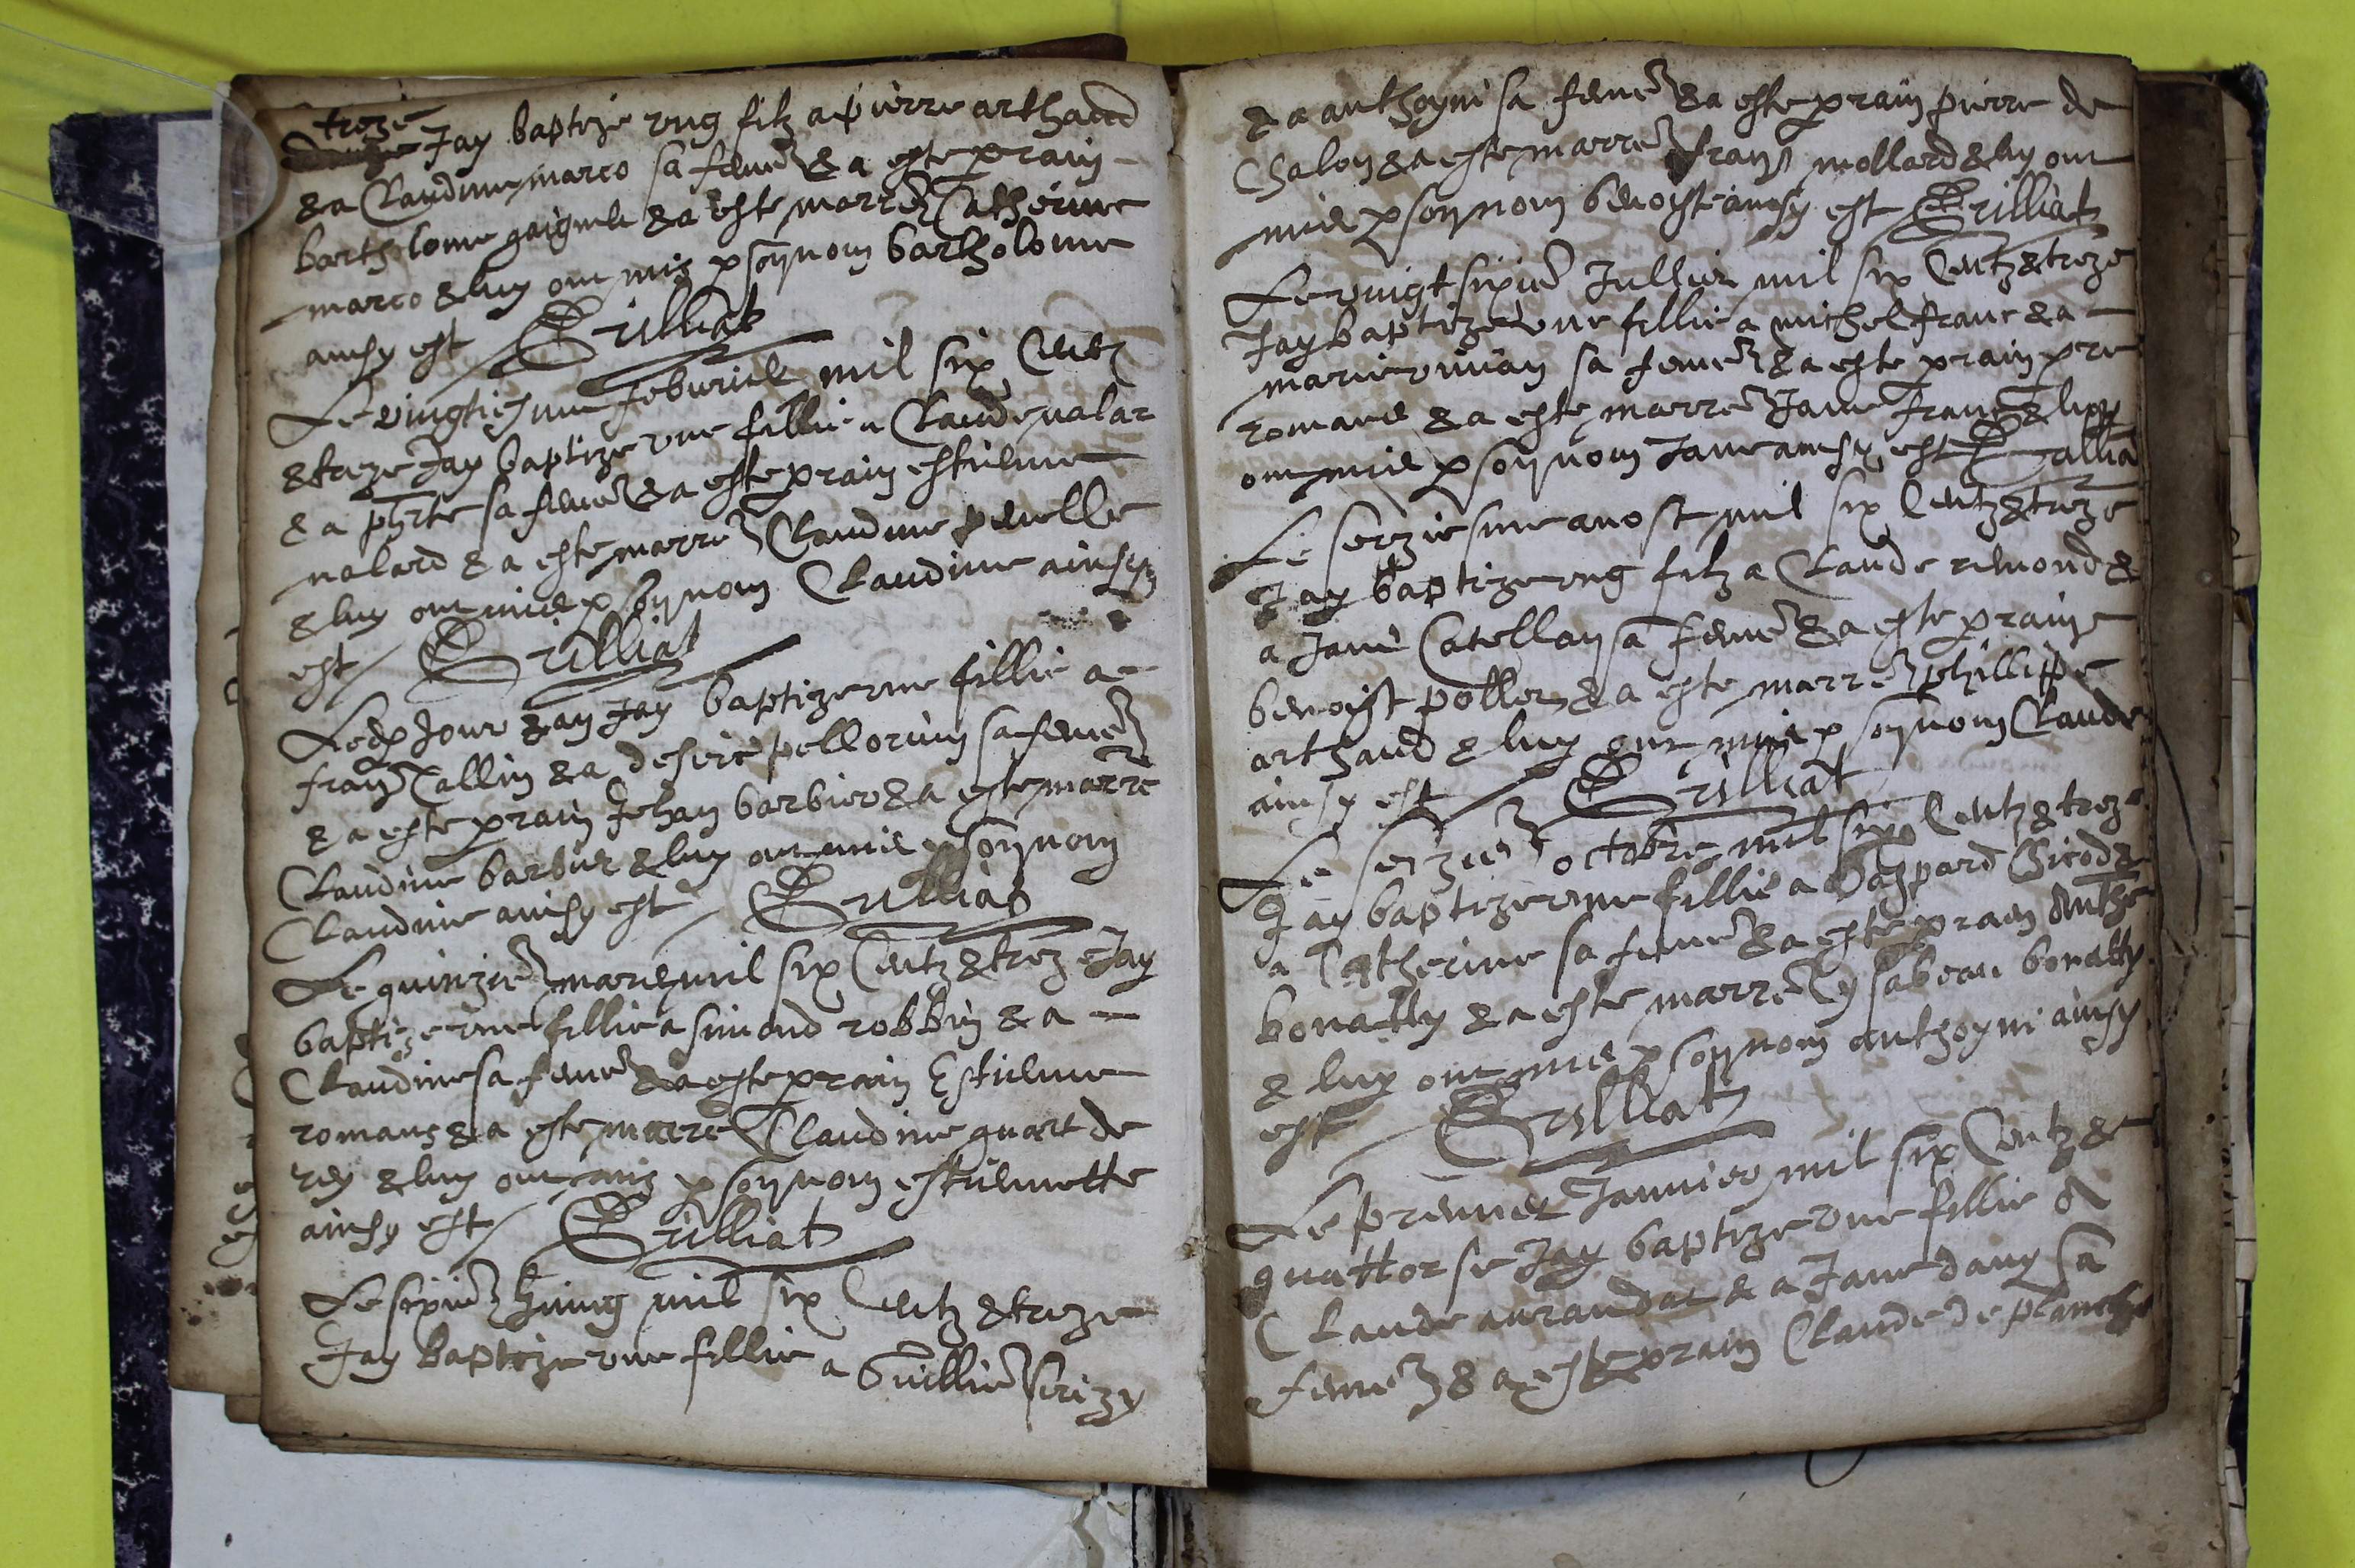 treze
Jay baptize ung filz a pierre arthaud
& a Claudine marco sa feme & a este prain
bartholome gaignele & a este marre Catherine
marco & luy ont mis p son nom bartholome
ainsy est Grilliat
Le vingtiesme feburier mil six Centz
& treze Jay baptize une fillie a Claude nalar
& a sa feme & a este prain estienne
nalard & a este marre Claudine
& luy ont mis p son nom Claudine ainsy
est Grilliat
Ledz Jour & an Jay baptize une fillie a
Callin & a desire pellorin sa feme
& a este prain Jehan barbier & a este marre
Claudine barbier & luy ont mis p son nom
Claudine ainsy est Grilliat
Le quinzie mars mil six Centz & treze Jay
baptize une fillie a simond robbin & a
Claudine sa feme & a este prain Estienne
romans & a este marre Claudine quart de
rey & luy ont mis p son nom estiennette
ainsy est Grilliat
Le sixie Juing mil six Centz & treze
Jay baptize une fillie a Guillie
& a anthoyni sa feme & a este prain pierre de
Chalon & a este marre mollard & luy ont
mis p son nom benoiste ainsy est Grilliat
Le vingt sixie Jullier mil six Centz & treze
Jay baptize une fillie a michel franc & a
marie vivian sa feme & a este prain pre
romans & a este marre Jane franc & luy
ont mis p son nom Jane ainsy est Grillia
Le seiziesme aost mil six Centz & treze
Jay baptize ung filz a Claude remond &
a Jane Catellan sa feme & a este prain
benoist & a este marre phillippe
arthaud & luy ont mis p son nom Claude
ainsy est Grilliat
Le seizie octobre mil six Centz & treze
Jay baptize une fillie a Gaspard &
a Catherine sa feme & a este prain Anthe
bonatty & a este marre ysabeau bonatty
& luy ont mis p son nom anthoyni ainsy
est Grilliat
Le premier Janvier mil six Centz &
quattorse Jay baptize une fillie a
Claude & a Jane dany sa
feme & a este prain Claude de planche